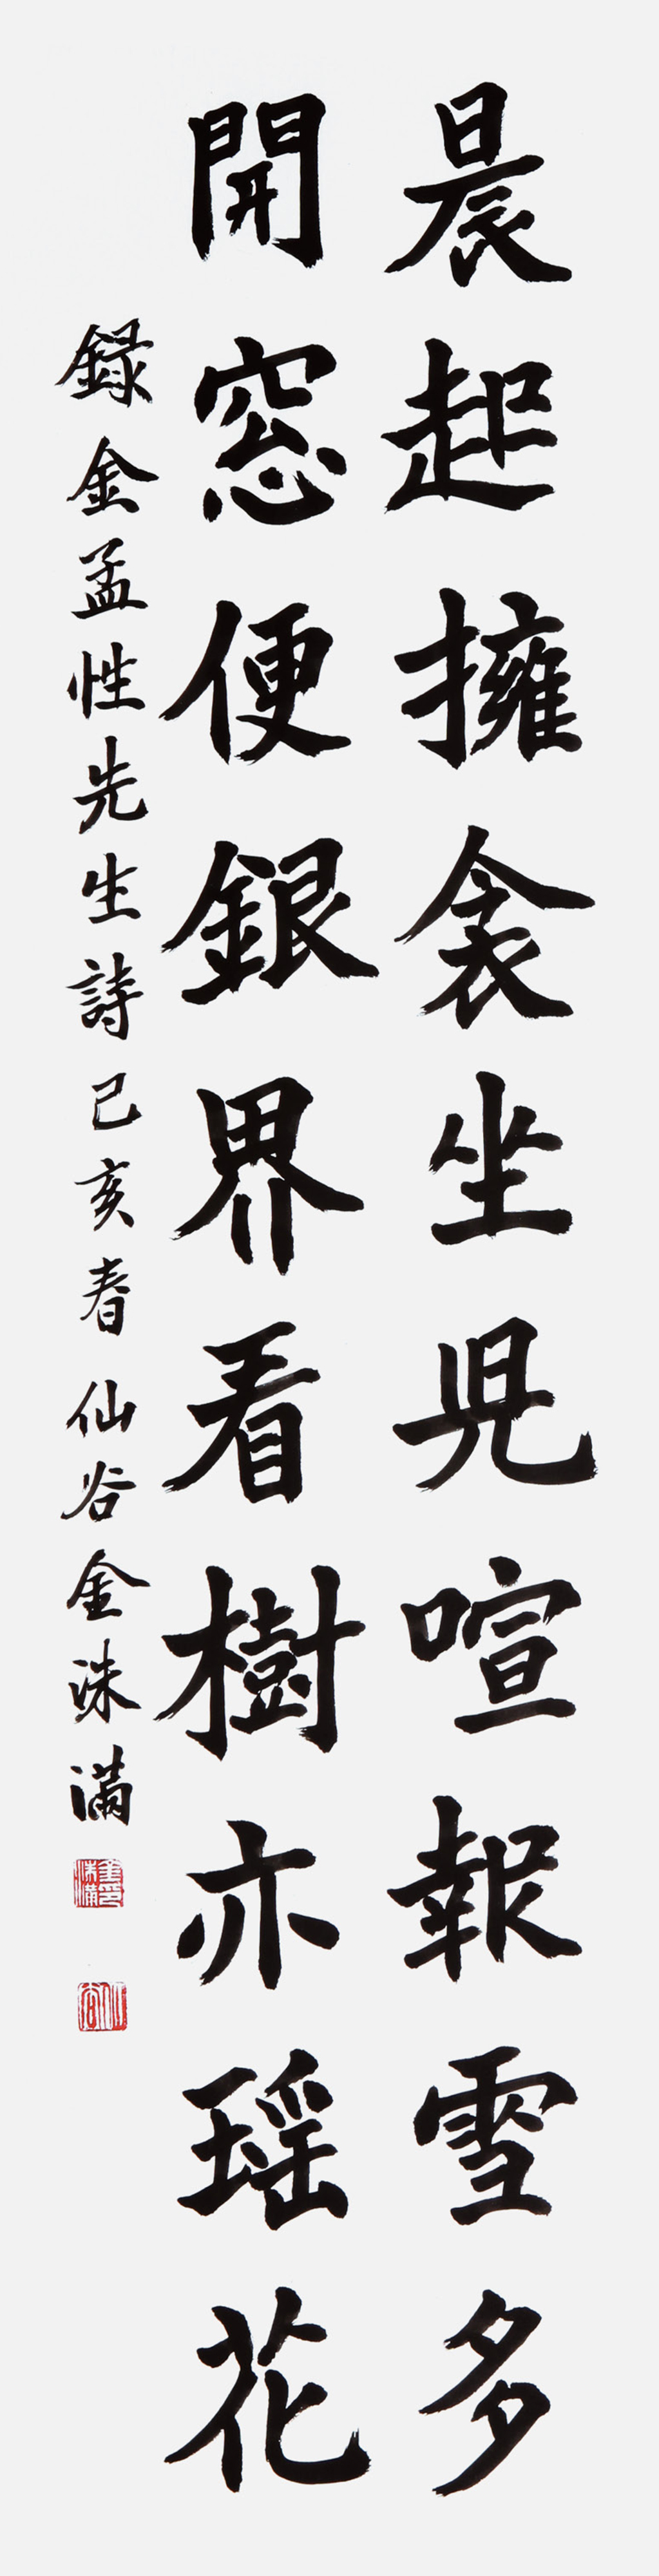 晨起擁衾坐兒喧報雪多
開窓便銀界看樹亦瑶花
録金孟性先生詩己亥春仙谷金洙滿
金洙滿印
仙谷